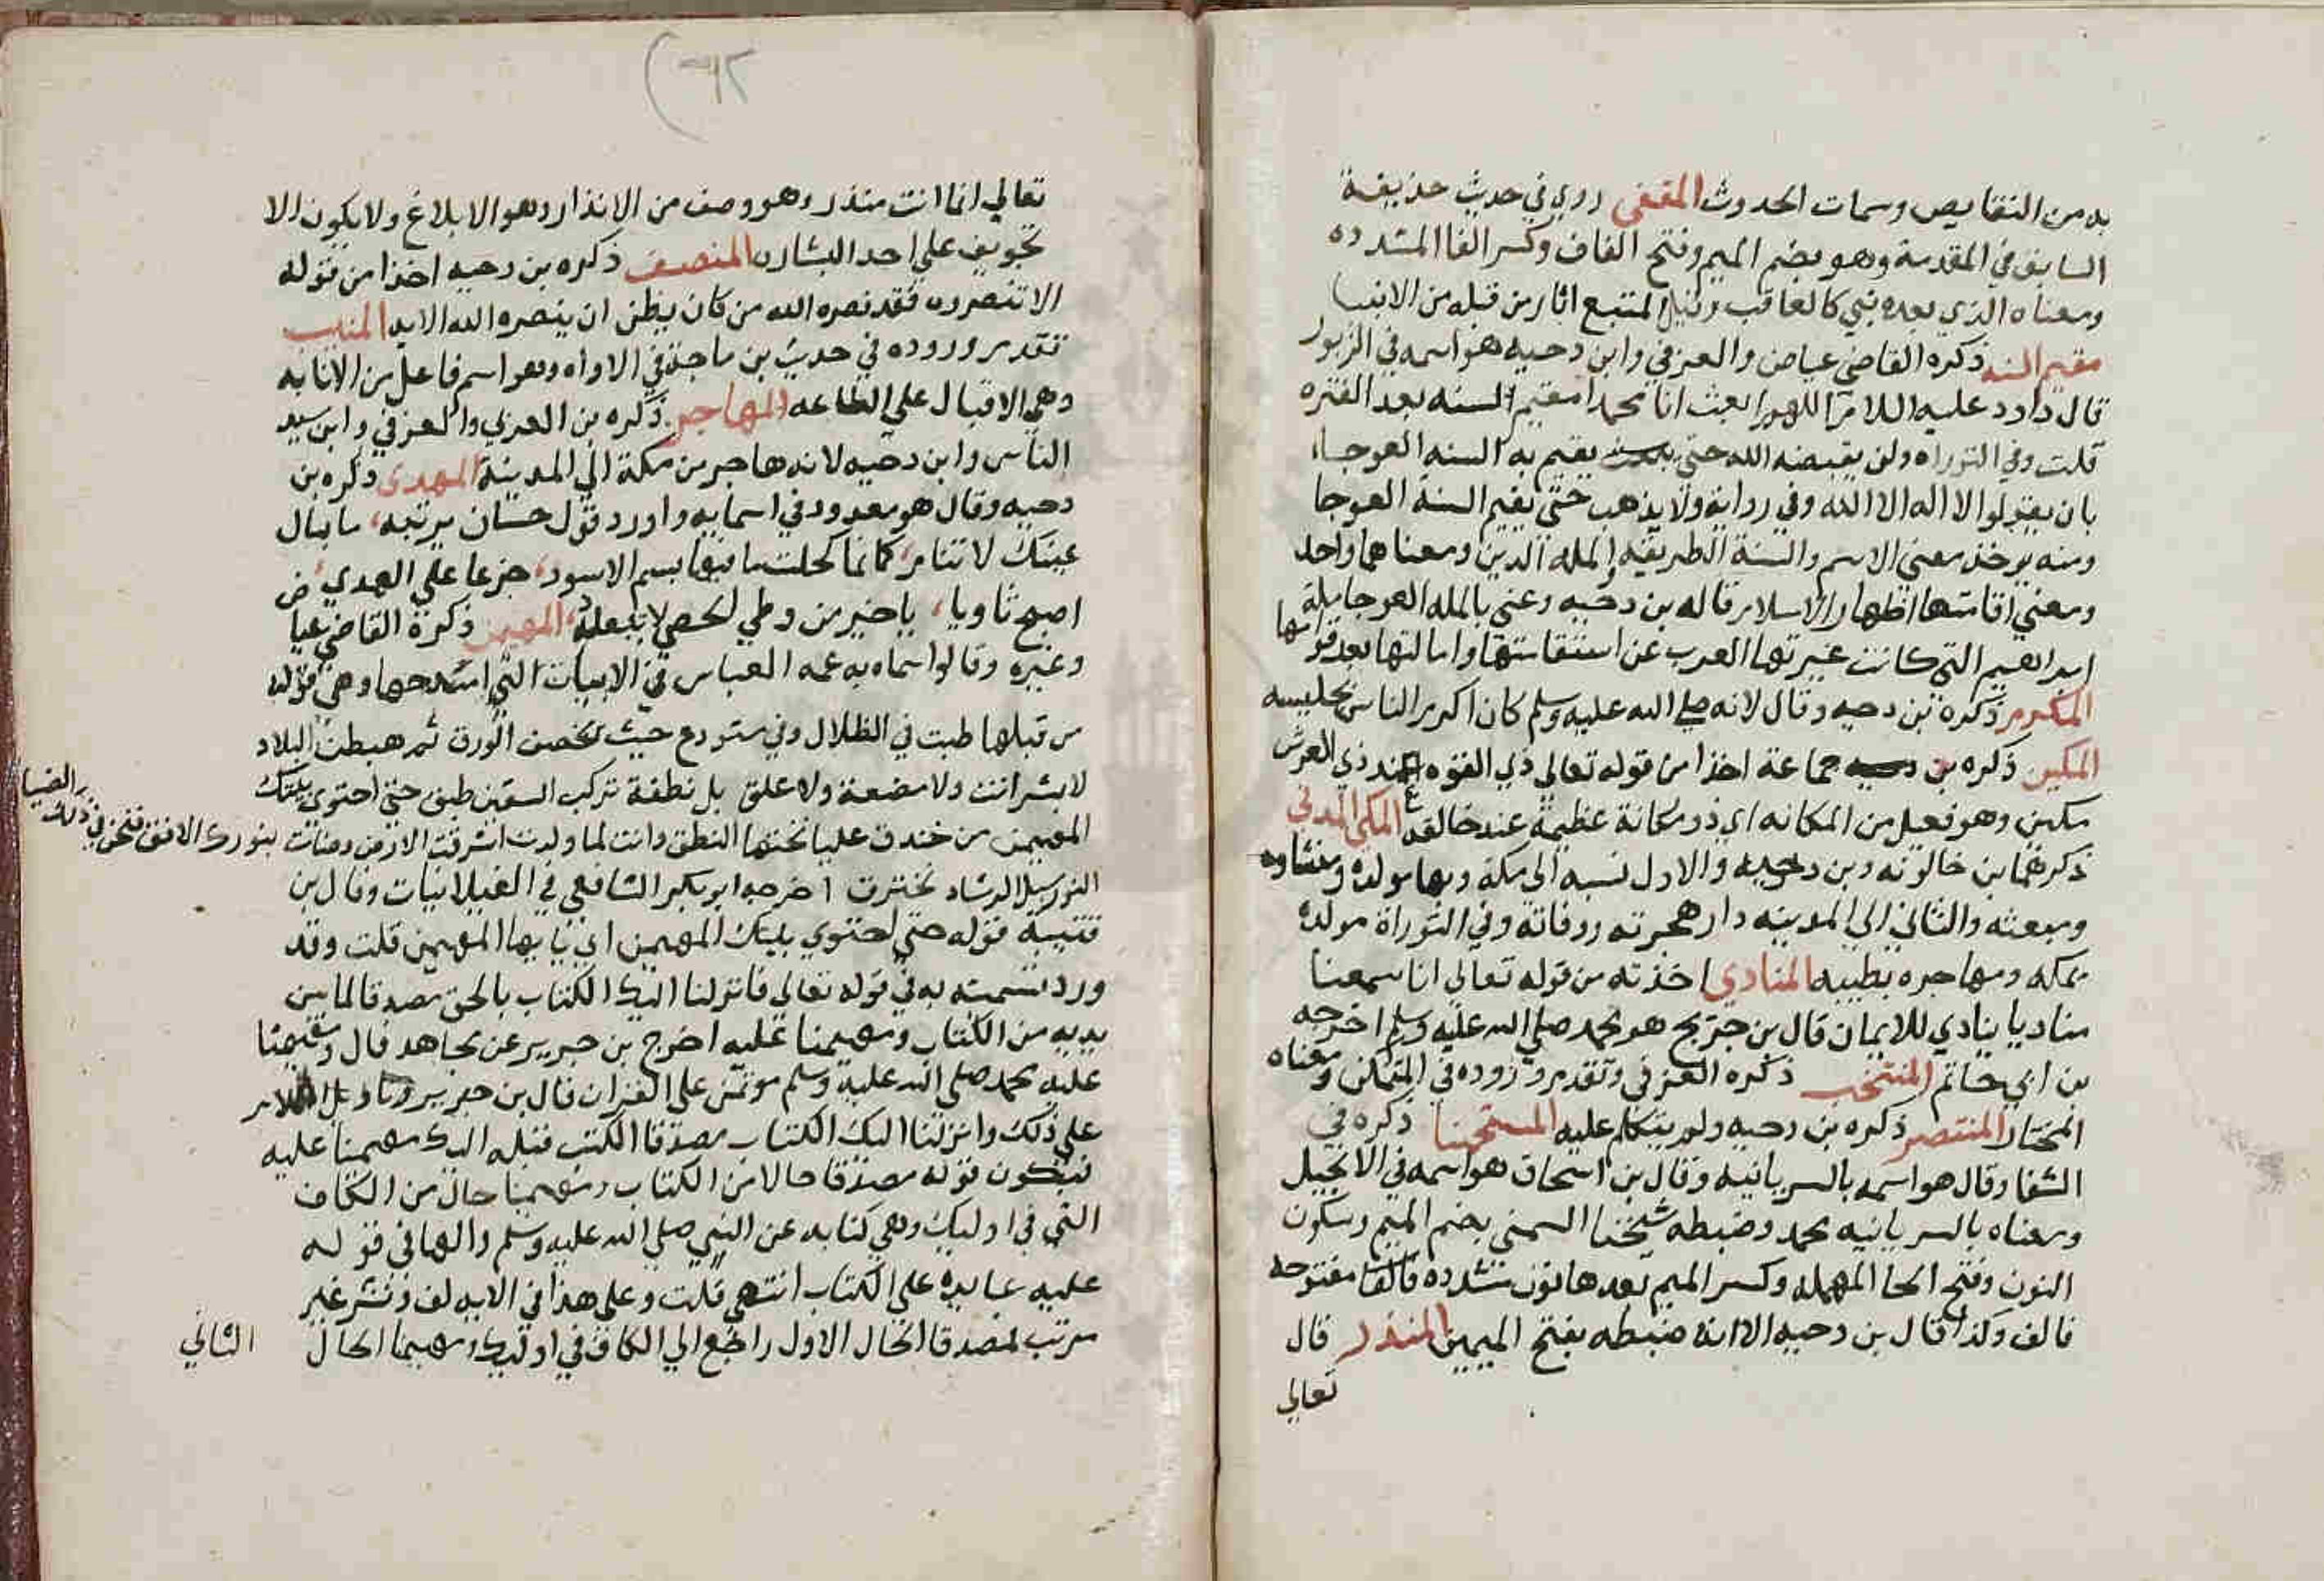 به من النقايص وسمات الحدوث المقفى روي في حديث حذيفة
السابق في المقدمة وهو بضم الميم وفتح القاف وكسر الفا المشدده
ومعناه الذي بعده نبي كالعاقب وقيل المتبع اثار من قبله من الانبيا
مقيم السنه ذكره القاضي عياض والعزفي وابن دحيه هو اسمه في الزبور
قال داود عليه السلام اللهم ابعث لنا محمدا مقيم السنه بعد الفتره
قلت وفي التوراه ولن يقبضه الله حتى يقيم به السنه العوجاء
بان يقولوا لا اله الا الله وفي رواية ولا يذهب حتى يقيم السنة العوجا
ومنه يوخذ معنى الاسم والسنة الطريقه والمله الدين ومعناهما واحد
ومعنى اقامتها اظهار الاسلام قاله بن دحيه وعني بالمله العوجا ملة
ابراهيم التي كانت غيرتها العرب عن استقامتها وامالتها بعد قوامها
المكرم ذكره بن دحيه وقال لانه صلى الله عليه وسلم كان اكرم الناس لجليسه
المكين ذكره جماعة اخذا من قوله تعالى ذي القوه عند ذي العرش
مكين وهو فعيل من المكانه اي ذو مكانة عظيمة عند خالقه المكي المدني
ذكرهما بن خالويه وبن دحيه والاول نسبه الى مكة وبها مولده ومنشاوه
ومبعثه والثاني الى المدينه دار هجرته ووفاته وفي التوراة مولده
بمكه ومهاجره بطيبه المنادي اخذته من قوله تعالى اننا سمعنا
مناديا ينادي للايمان قال بن جريج هو محمد صلى الله عليه وسلم اخرجه
بن ابي حاتم المنتخب ذكره العزفي وتقدم وروده في المتمكن ومعناه
المختار المنتصر ذكره بن دحيه ولم يتكلم عليه المنحمنا ذكره في
الشفا وقال هو اسمه بالسريانيه وقال بن اسحاق هو اسمه في الانجيل
ومعناه بالسريانيه محمد وضبطه شيخنا الشمني بضم الميم وسكون
النون وفتح الحا المهمله وكسر الميم بعدها نون مشدده مفتوحه
فالف وكذا قال بن دحيه الا انه ضبطه بفتح الميمين المنذر قال
تعالى
تعالي انما انت منذر وهو وصف من الانذار وهو الابلاغ ولا يكون الا
تخويف على احد البشاره المنصف ذكره بن دحيه اخذا من قوله
الا تنصروه فقد نصره الله من كان يظن ان ينصره الله الايه المنيب
تقدم وروده في حديث بن ماجة في الاواه وهو اسم فاعل من الانابه
وهي الاقبال على الطاعه المهاجر ذكره بن العربي والعزفي وابن سيد
الناس وابن دحيه لانه هاجر من مكة الى المدينة المهدى ذكره بن
دحيه وقال هو معدود في اسمايه واورد قول حسان يرثيه، ما بال
عينك لا تنام، كانما كحلت ماقيها بسم الاسود، جزعا على المهدي
اصبح ثاويا، يا خير من وطي الحصى لا تبعد المهيمن ذكره القاضي عياض
وغيره وقالوا سماه به عمه العباس في الابيات التي امتدحها وهي قوله
من قبلها طبت في الظلال وفي مستودع حيث يخصف الورق ثم هبطت البلاد
لا بشر انت ولا مضغة ولا علق بل نطفة تركب السفين طبق حتى احتوى بيتك
المهيمن من خندق عليا تحتها النطق وانت لما ولدت اشرقت الارض وضائت بنورك الافق فنحن في ذلك الضيا
النور وسبل الرشاد نخترق اخرجه ابو بكر الشافعي في الغيلانيات وقال بن
قتيبة قوله حتى احتوى بيتك المهيمن اي يا ايها المهيمن قلت وقد
ورد تسميته به في قوله تعالى فانزلنا اليك الكتاب بالحق مصدقا لما بين
يديه من الكتاب ومهيمنا عليه اخرج بن جرير عن مجاهد قال ومهيمنا
عليه محمد صلى الله عليه وسلم موتمن على القران قال بن جرير
على ذلك وانزلنا اليك الكتاب مصدقا الكتب قبله اليك مهيمنا عليه
فيكون قوله مصدقا حالا من الكتاب ومهيمنا حال من الكاف
التي في اوليك وهي كنايه عن النبي صلى الله عليه وسلم والها في قوله
عليه عايدة على الكتاب انتهى قلت وعلى هذا في الايه لف ونشر غير
مرتب لمصدقا الحال الاول راجع الى الكاف في ومهيمنا الحال الثاني